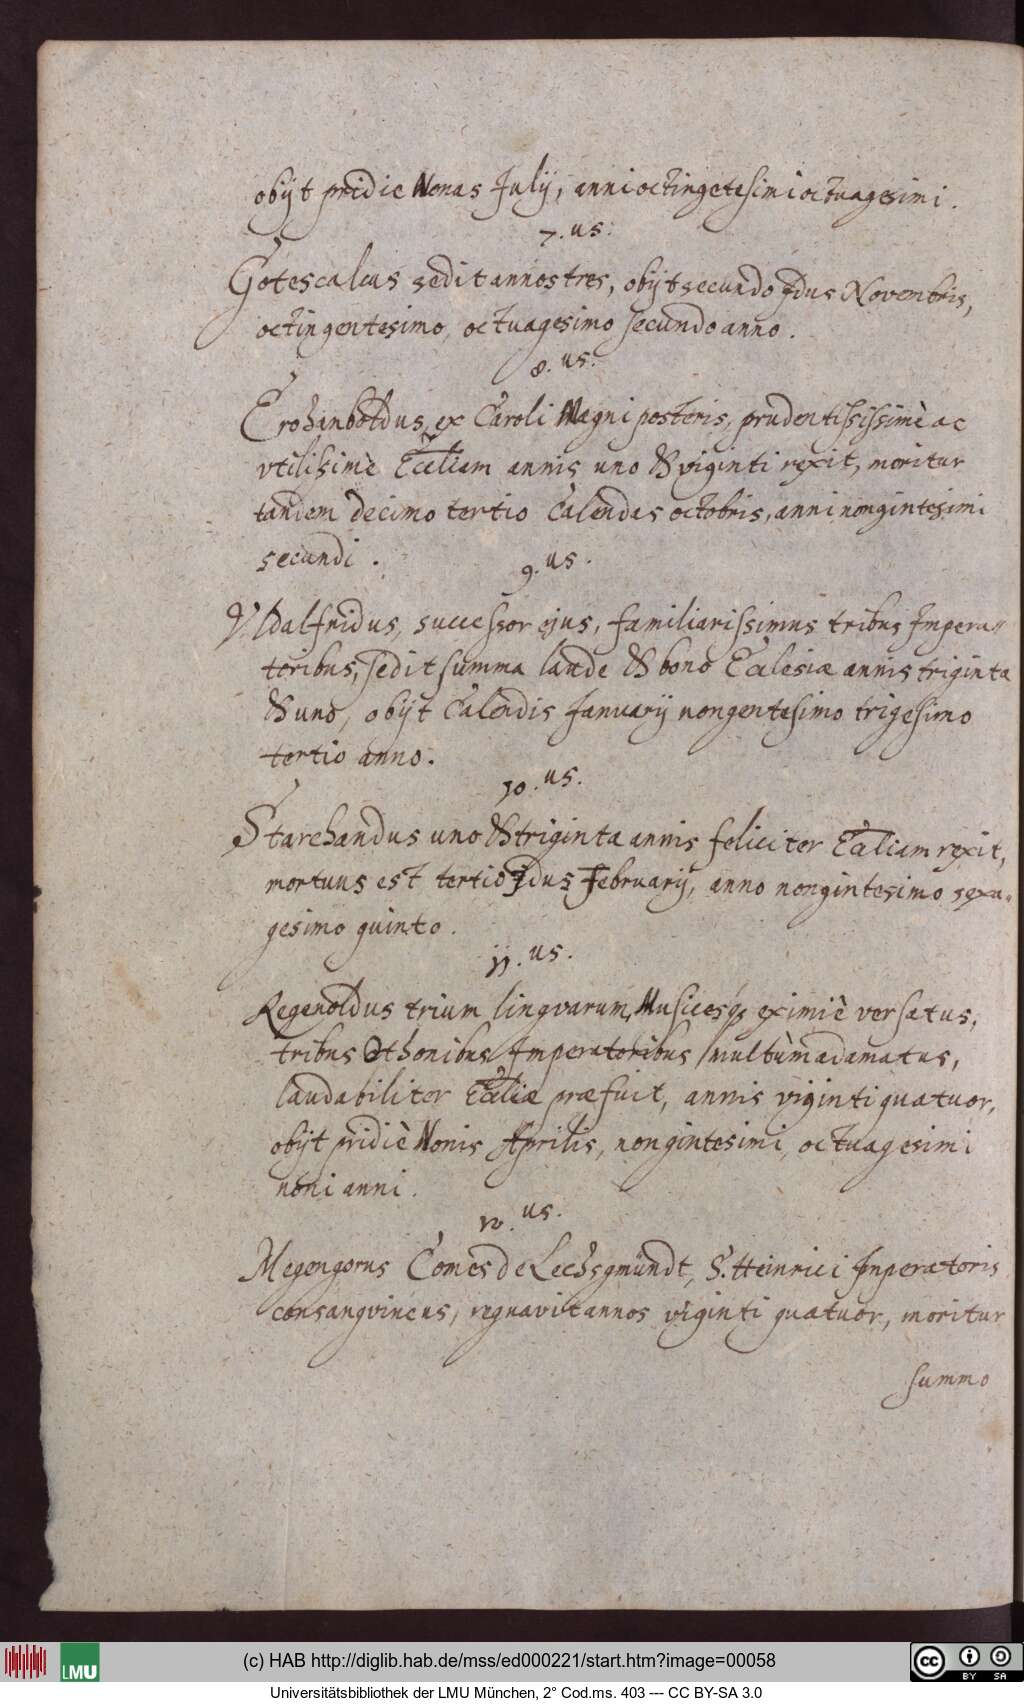 obijt pridie Nonas Julij, anni octingetesimi octuagesimi.
7.us.
Gotescalcus sedit annos tres, obijt secundo Jdus Novembris,
octingentesimo, octuagesimo secundo anno.
8.us.
Erohanboldus, ex Caroli Magni posteris, prudentissississimè ac
vtilissimè Eccliam annis uno & viginti rexit, moritur
tandem decimo tertio Calendas octobris, anni nongintesimi
secundi.
9.us.
Vldalfridus, successor ejus, familiarissimus tribus Impera-
toribus, sedit summa laude & bono Ecclesiæ annis triginta
& uno, obijt Calendis Januarij nongentesimo trigesimo
tertio anno.
10.us.
Starchandus uno & triginta annis feliciter Eccliam rexit,
mortuus est tertio Jdus Februarij, anno nongintesimo sexa-
gesimo quinto.
11.us.
Regenoldus trium lingvarum, Musicesq3 eximiè versatus,
tribus Othonibus Imperatoribus multùm adamatus,
laudabiliter Eccliæ præfuit, annis viginti quatuor,
obijt pridiè Nonis Aprilis, nongintesimi, octuagesimi
noni anni.
12.us.
Megengorus Comes de Lechsgmündt, S. Heinrici Inperatoris
consangvineus, regnavit annos viginti quatuor, moritur
summo
LMU
(c) HAB http://diglib.hab.de/mss/ed000221/start.htm?image=00058
Universitätsbibliothek der LMU München, 2° Cod.ms. 403 --- CC BY-SA 3.0
cc BY SA